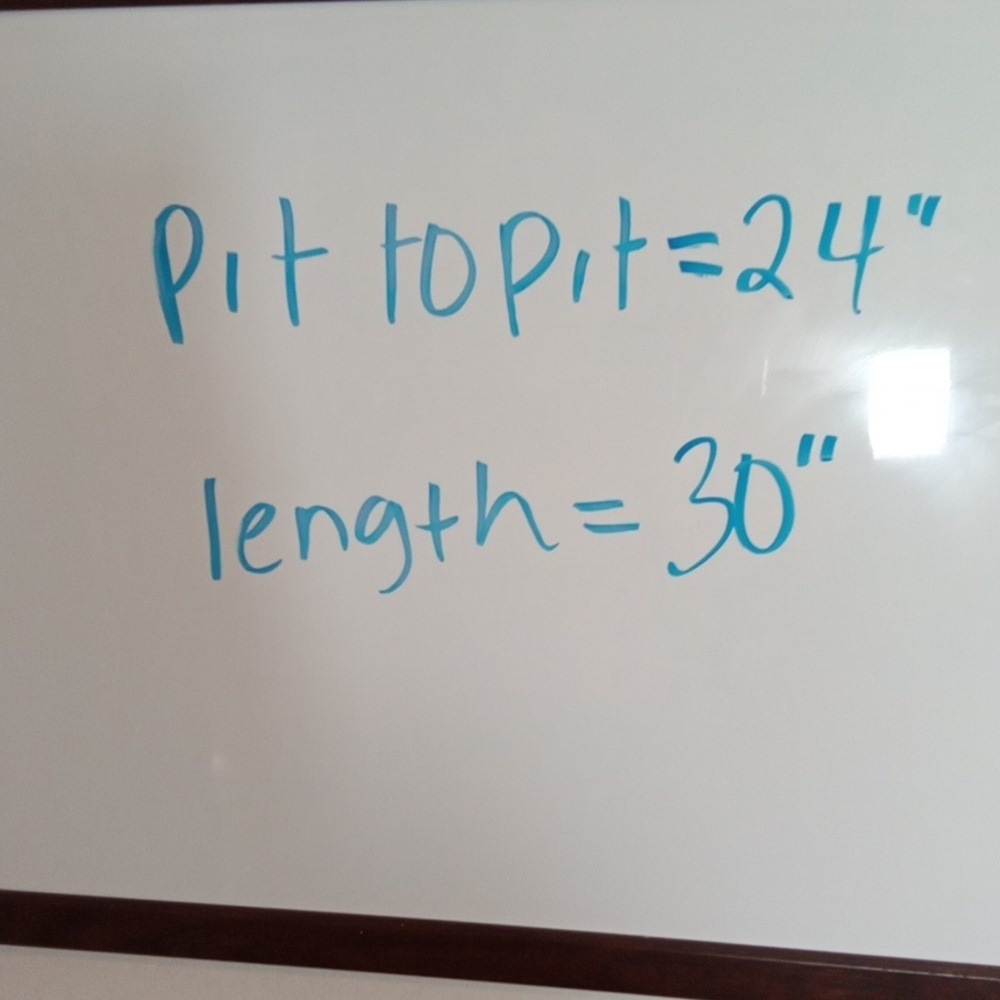 pit to pit = 24"
length = 30"